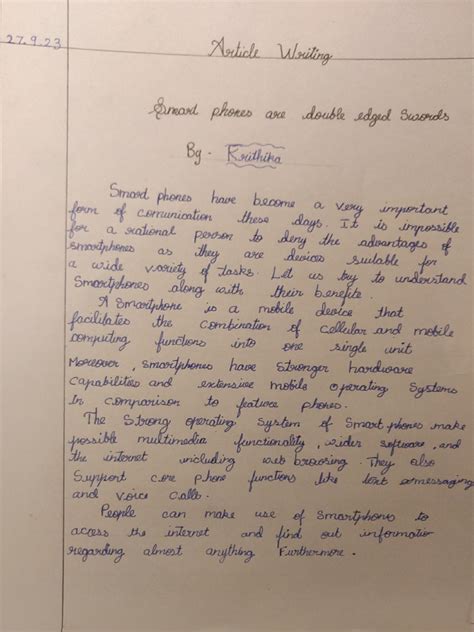 27.9.23
Article Writing
Smart phones are double edged Swords
By - Krithika
Smart phones have become a very important
form of comunication these days. It is impossible
for a rational person to deny the advantages of
smartphones as they are devices suitable for
a wide variety of tasks. Let us try to understand
Smartphones along with their benefits.
A Smartphone is a mobile device that
facilitates the combination of cellular and mobile
computing functions into one single unit
Moreover, smartphones have stronger hardware
capabilities and extensive mobile operating systems
In comparison to feature phones.
The Strong operating system of Smart phones make
possible multimedia functionality, wider software, and
the internet including web browsing. They also
Support core phone functions like text messaging
and voice calls.
People can make use of Smartphones to
access the internet and find out information
regarding almost anything Furthermore.